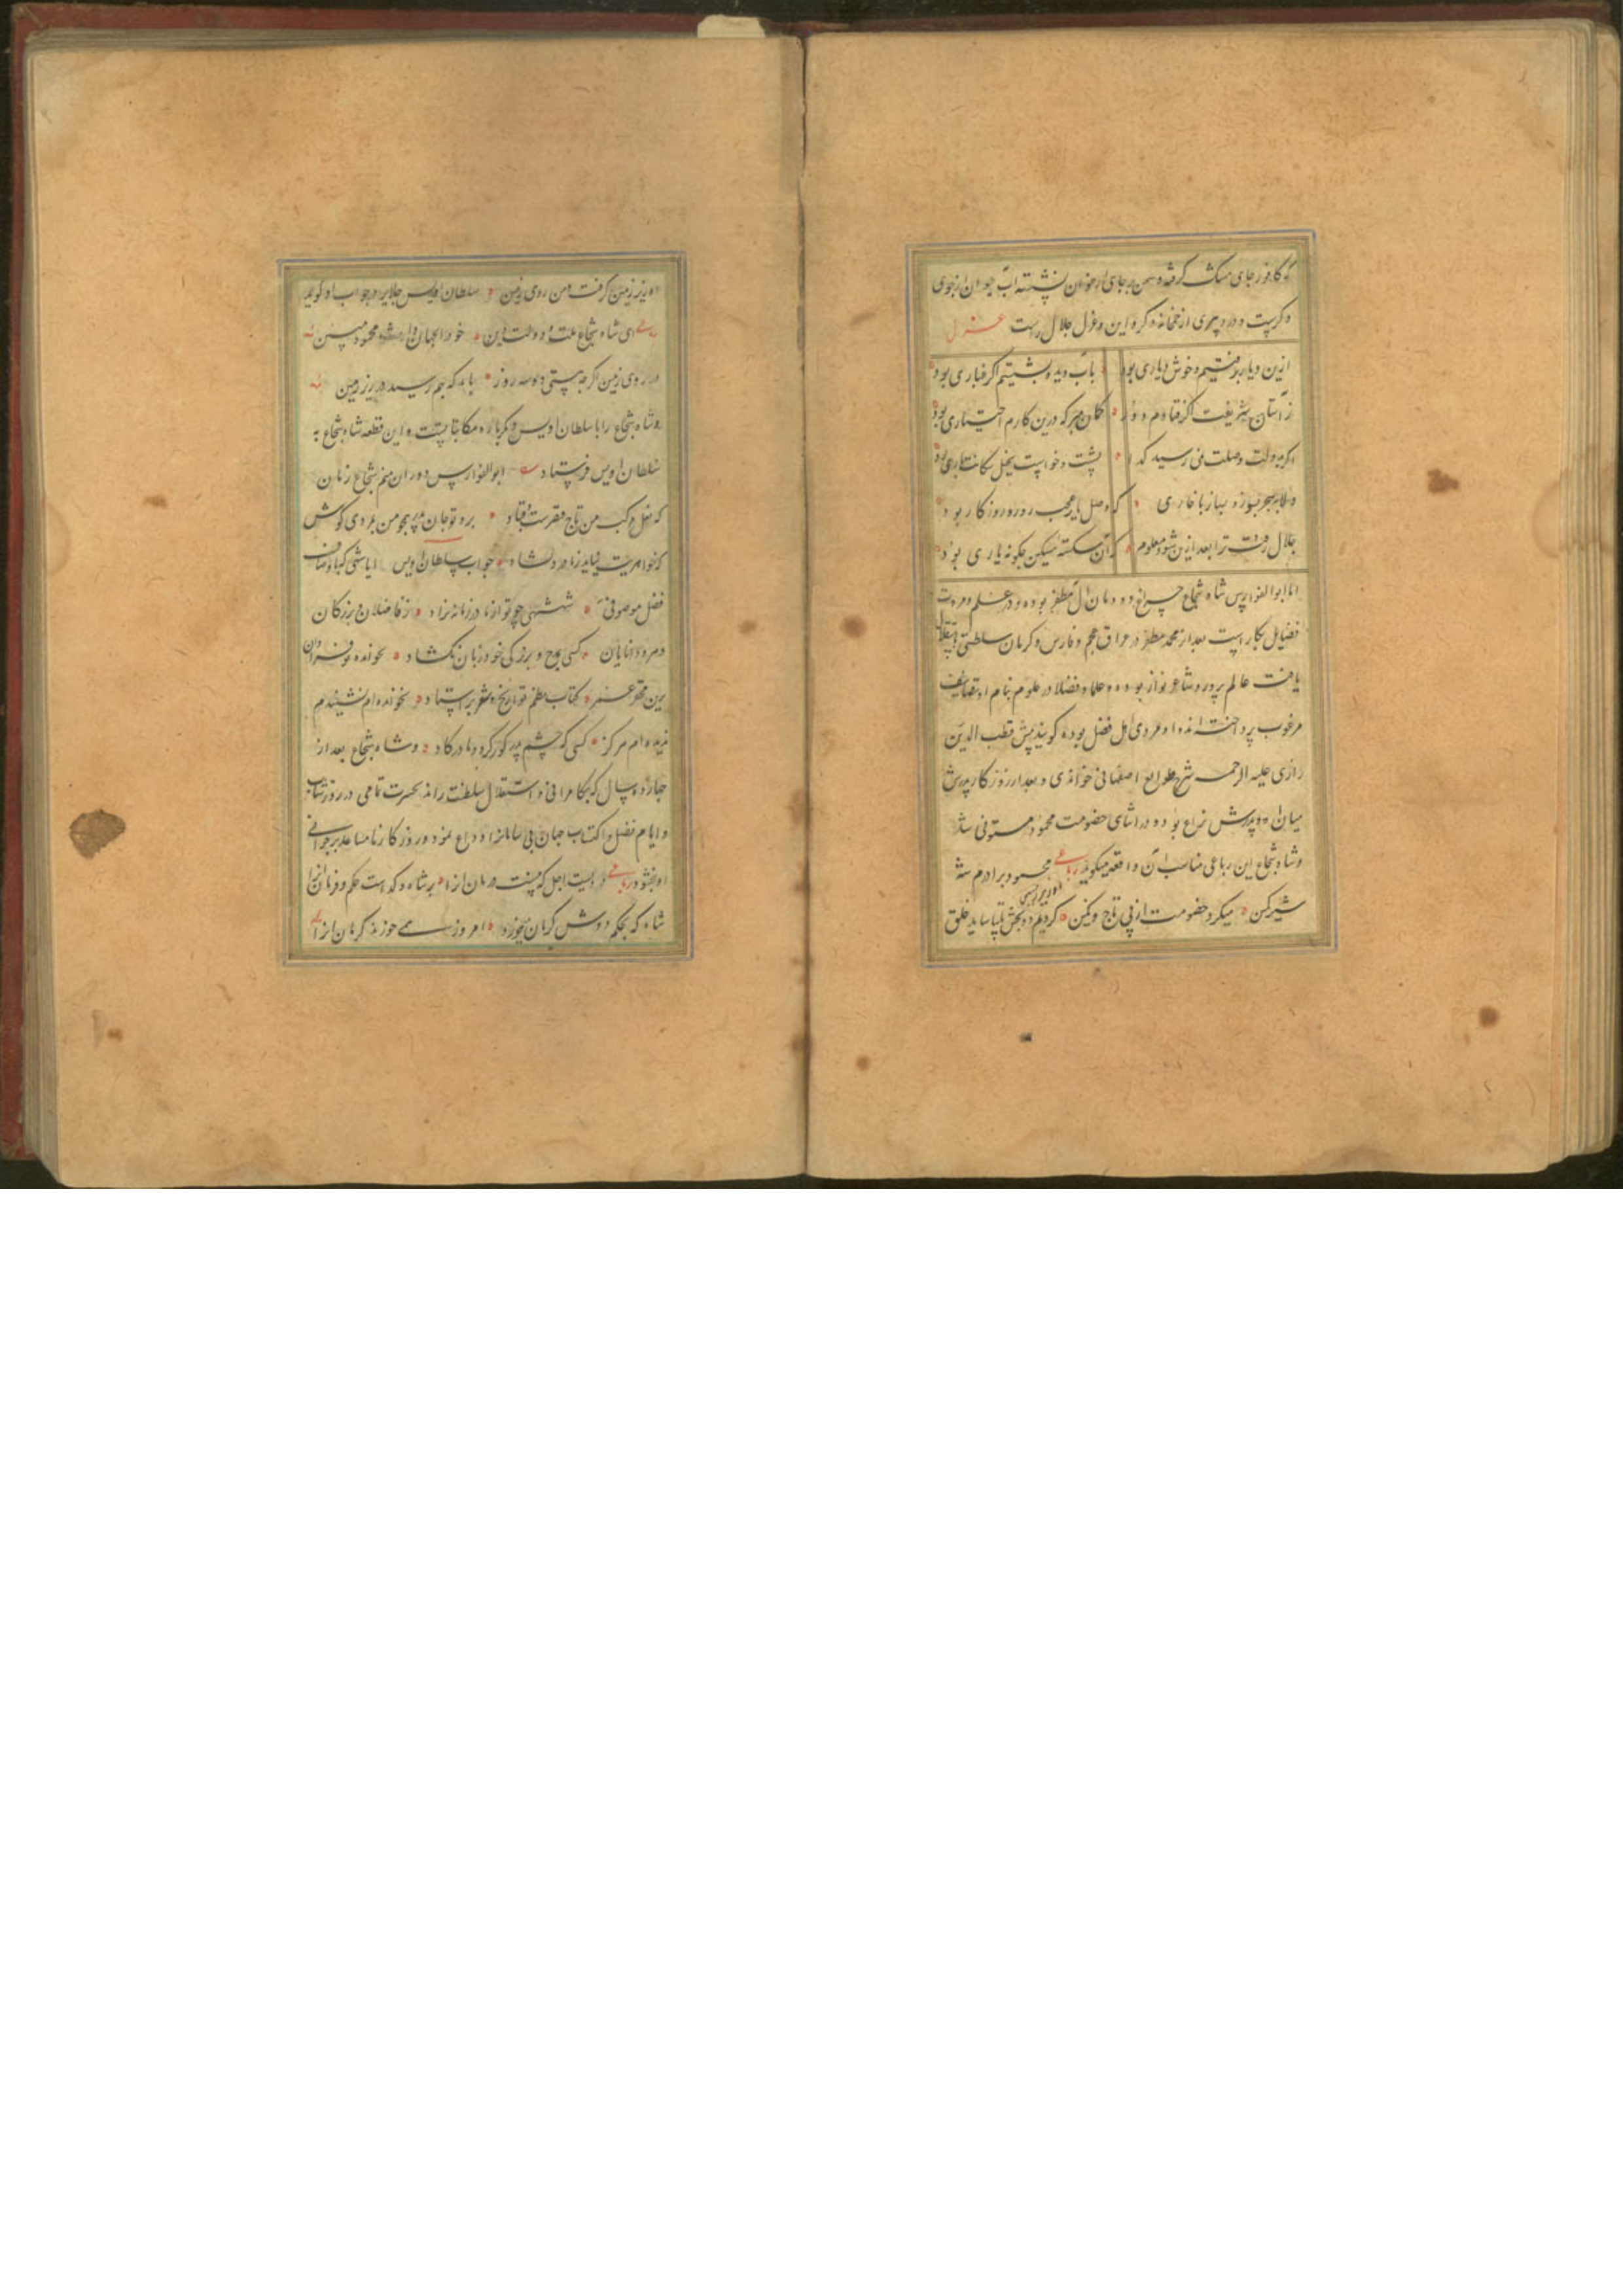 که کافور جای مشک گرفته و سمن بر جای ارغوان نشسته آب حیوان از جوی
دگرست و درد پیری از خمخانه دگر و این غزل جلال راست غزل
ازین دیار برفتیم و خوش دیاری بود بآب دیده بشستیم اگر غباری بود
ز آستان شریفت اگر فتادم دور گمان مبر که درین کارم اختیاری بود
اگر بدولت وصلت نمی رسید گدا
جلال رفت ترا بعد ازین شود معلوم که آن شکسته مسکین چگونه یاری بود
اما ابو الفوارس شاه شجاع چراغ دودمان آل مظفر بوده و در علم و مروت
فضایل بعد از محمد مظفر در عراق عجم و فارس و کرمان سلطنتی باستقلال
یافت عالم پرور و شاعر نواز بوده و علما و فضلا در علوم بنام او تصانیف
مرغوب پرداخته اند و او مردی اهل فضل بوده گویند پیش قطب الدین
رازی علیه الرحمه شرح طوالع اصفهانی خواندی و بعد از روزگار پدرش
میان او و برادرش نزاع بود و در اثنای خصومت محمود متوفی شد
و شاه شجاع این رباعی مناسب آن واقعه میگوید رباعی محمود برادرم شه
شیر کمین میکرد خصومت از پی تاج و نگین کردیم دو بخش تا بیاساید خلق
او زیر زمین گرفت من روی زمین سلطان اویس جلایر در جواب او گوید
ای شاه شجاع ملت و دولت و دین خود را بجهان وارث محمود مبین
در روی زمین اگر چه هستی دو سه روز باید که بهم رسید در زیر زمین
و شاه شجاع را با سلطان اویس دگر باره مکاتباتست و این قطعه شاه شجاع به
سلطان اویس فرستاد ابو الفوارس دوران منم شجاع زمان
که نعل مرکب من تاج قیصرست و قباد برو تو جان پدر همچو من بمردی کوش
جواب سلطان اویس ایا شهی که باوصاف
فضل موصوفی شهنشهی چو تو از مادر زمانه نزاد ز فاضلان و بزرگان
و مردم دانایان کسی بمدح و بزرگی خود زبان نگشاد بخوانده ام فراوان
درین محقر عمر کتاب نظم و تواریخ و نثر بر استاد نخوانده ام نشنیدم
ندیده ام هرگز کسی که چشم پدر کور کرد و مادر گاد و شاه شجاع بعد از
چهارده سال که بکامرانی و استقلال سلطنت راند بحسرت تمامی در روز شباب
و ایام فضل و اکتساب جهان بی سامان را وداع نمود و روزگار نامساعد بر جوانی
او نبخشود رباعی دردیست اجل که نیست درمان او را بر شاه و گداست حکم و فرمان او را
شاه که بحکم دوش کرمان میخورد امروز همی خورند کرمان او را